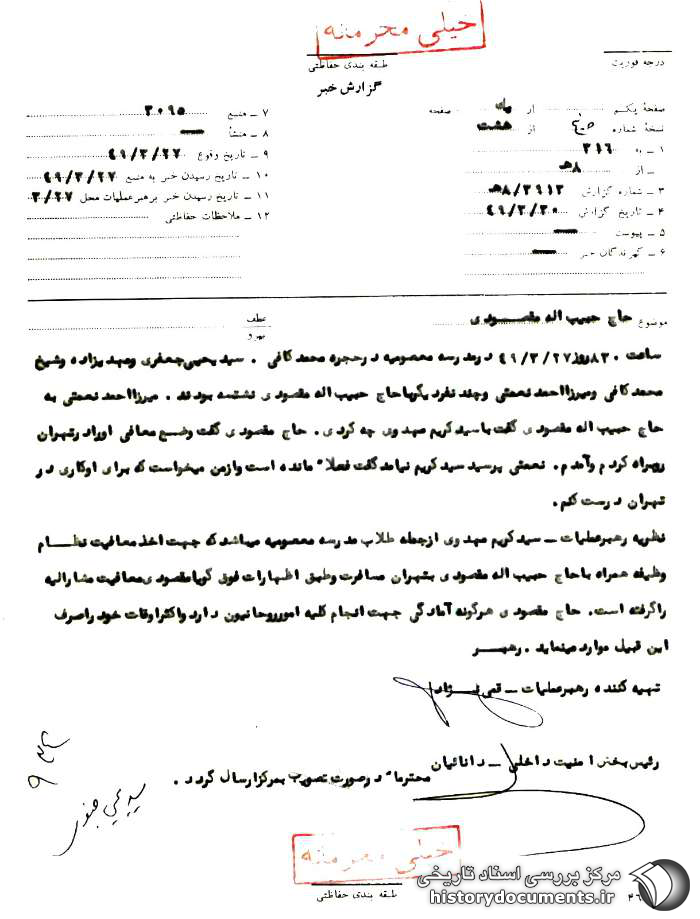 خیلی محرمانه
درجه فوریت
طبقه بندی حفاظتی
گزارش خبر
صفحهٔ یکم از صفحه
نسخهٔ شماره از هشت
۱ ـ به ۳۱۶
ـ از ۸هـ
۳ ـ شماره گزارش ۸/۳۶۱۳هـ
۴ ـ تاریخ گزارش ۴۹/۳/۳۰
۵ ـ پیوست ـــ
۶ ـ گیرندگان خبر ـــ
۷ ـ منبع ۳۰۹۵
۸ ـ منشأ ـــ
۹ ـ تاریخ وقوع ۴۹/۳/۲۷
۱۰ ـ تاریخ رسیدن خبر به منبع ۴۹/۳/۲۷
۱۱ ـ تاریخ رسیدن خبر برهبرعملیات محل ۳/۲۷
۱۲ ـ ملاحظات حفاظتی
موضوع حاج حبیب اله مقصودی
عطف
پیرو
ساعت ۸۳۰روز۴۹/۳/۲۷ درمدرسه معصومیه درحجره محمدکافی . سیدیحیی‌جعفری ومهدیزاده وشیخ
محمدکافی ومیرزااحمدنعمتی وچندنفردیگرباحاج حبیب اله مقصودی نشسته بودند . میرزااحمدنعمتی به
حاج حبیب اله مقصودی گفت باسیدکریم مهدوی چه کردی . حاج مقصودی گفت وضع معافی اورادرتهران
روبراه کردم وآمدم . نعمتی پرسید سیدکریم نیامدگفت فعلاً مانده است وازمن میخواست که برای اوکاری در
تهران درست کنم .
نظریه رهبرعملیات ـ سیدکریم مهدوی ازجمله طلاب مدرسه معصومیه میباشدکه جهت اخذمعافیت نظام
وظیفه همراه باحاج حبیب اله مقصودی بتهران مسافرت وطبق اظهارات فوق گویامقصودی‌معافیت مشارالیه
راگرفته است . حاج مقصودی هرگونه آمادگی جهت انجام کلیه امورروحانیون داردواکثراوقات خودراصرف
این قبیل مواردمینماید . رهبر
تهیه کننده رهبرعملیات ـ
رئیس بخش امنیت داخلی ـ دانائیان محترماً درصورت تصویب بمرکزارسال گردد .
۹
سید یحیی جعفری
خیلی محرمانه
طبقه بندی حفاظتی
مرکز بررسی اسناد تاریخی
historydocuments.ir
۴۶